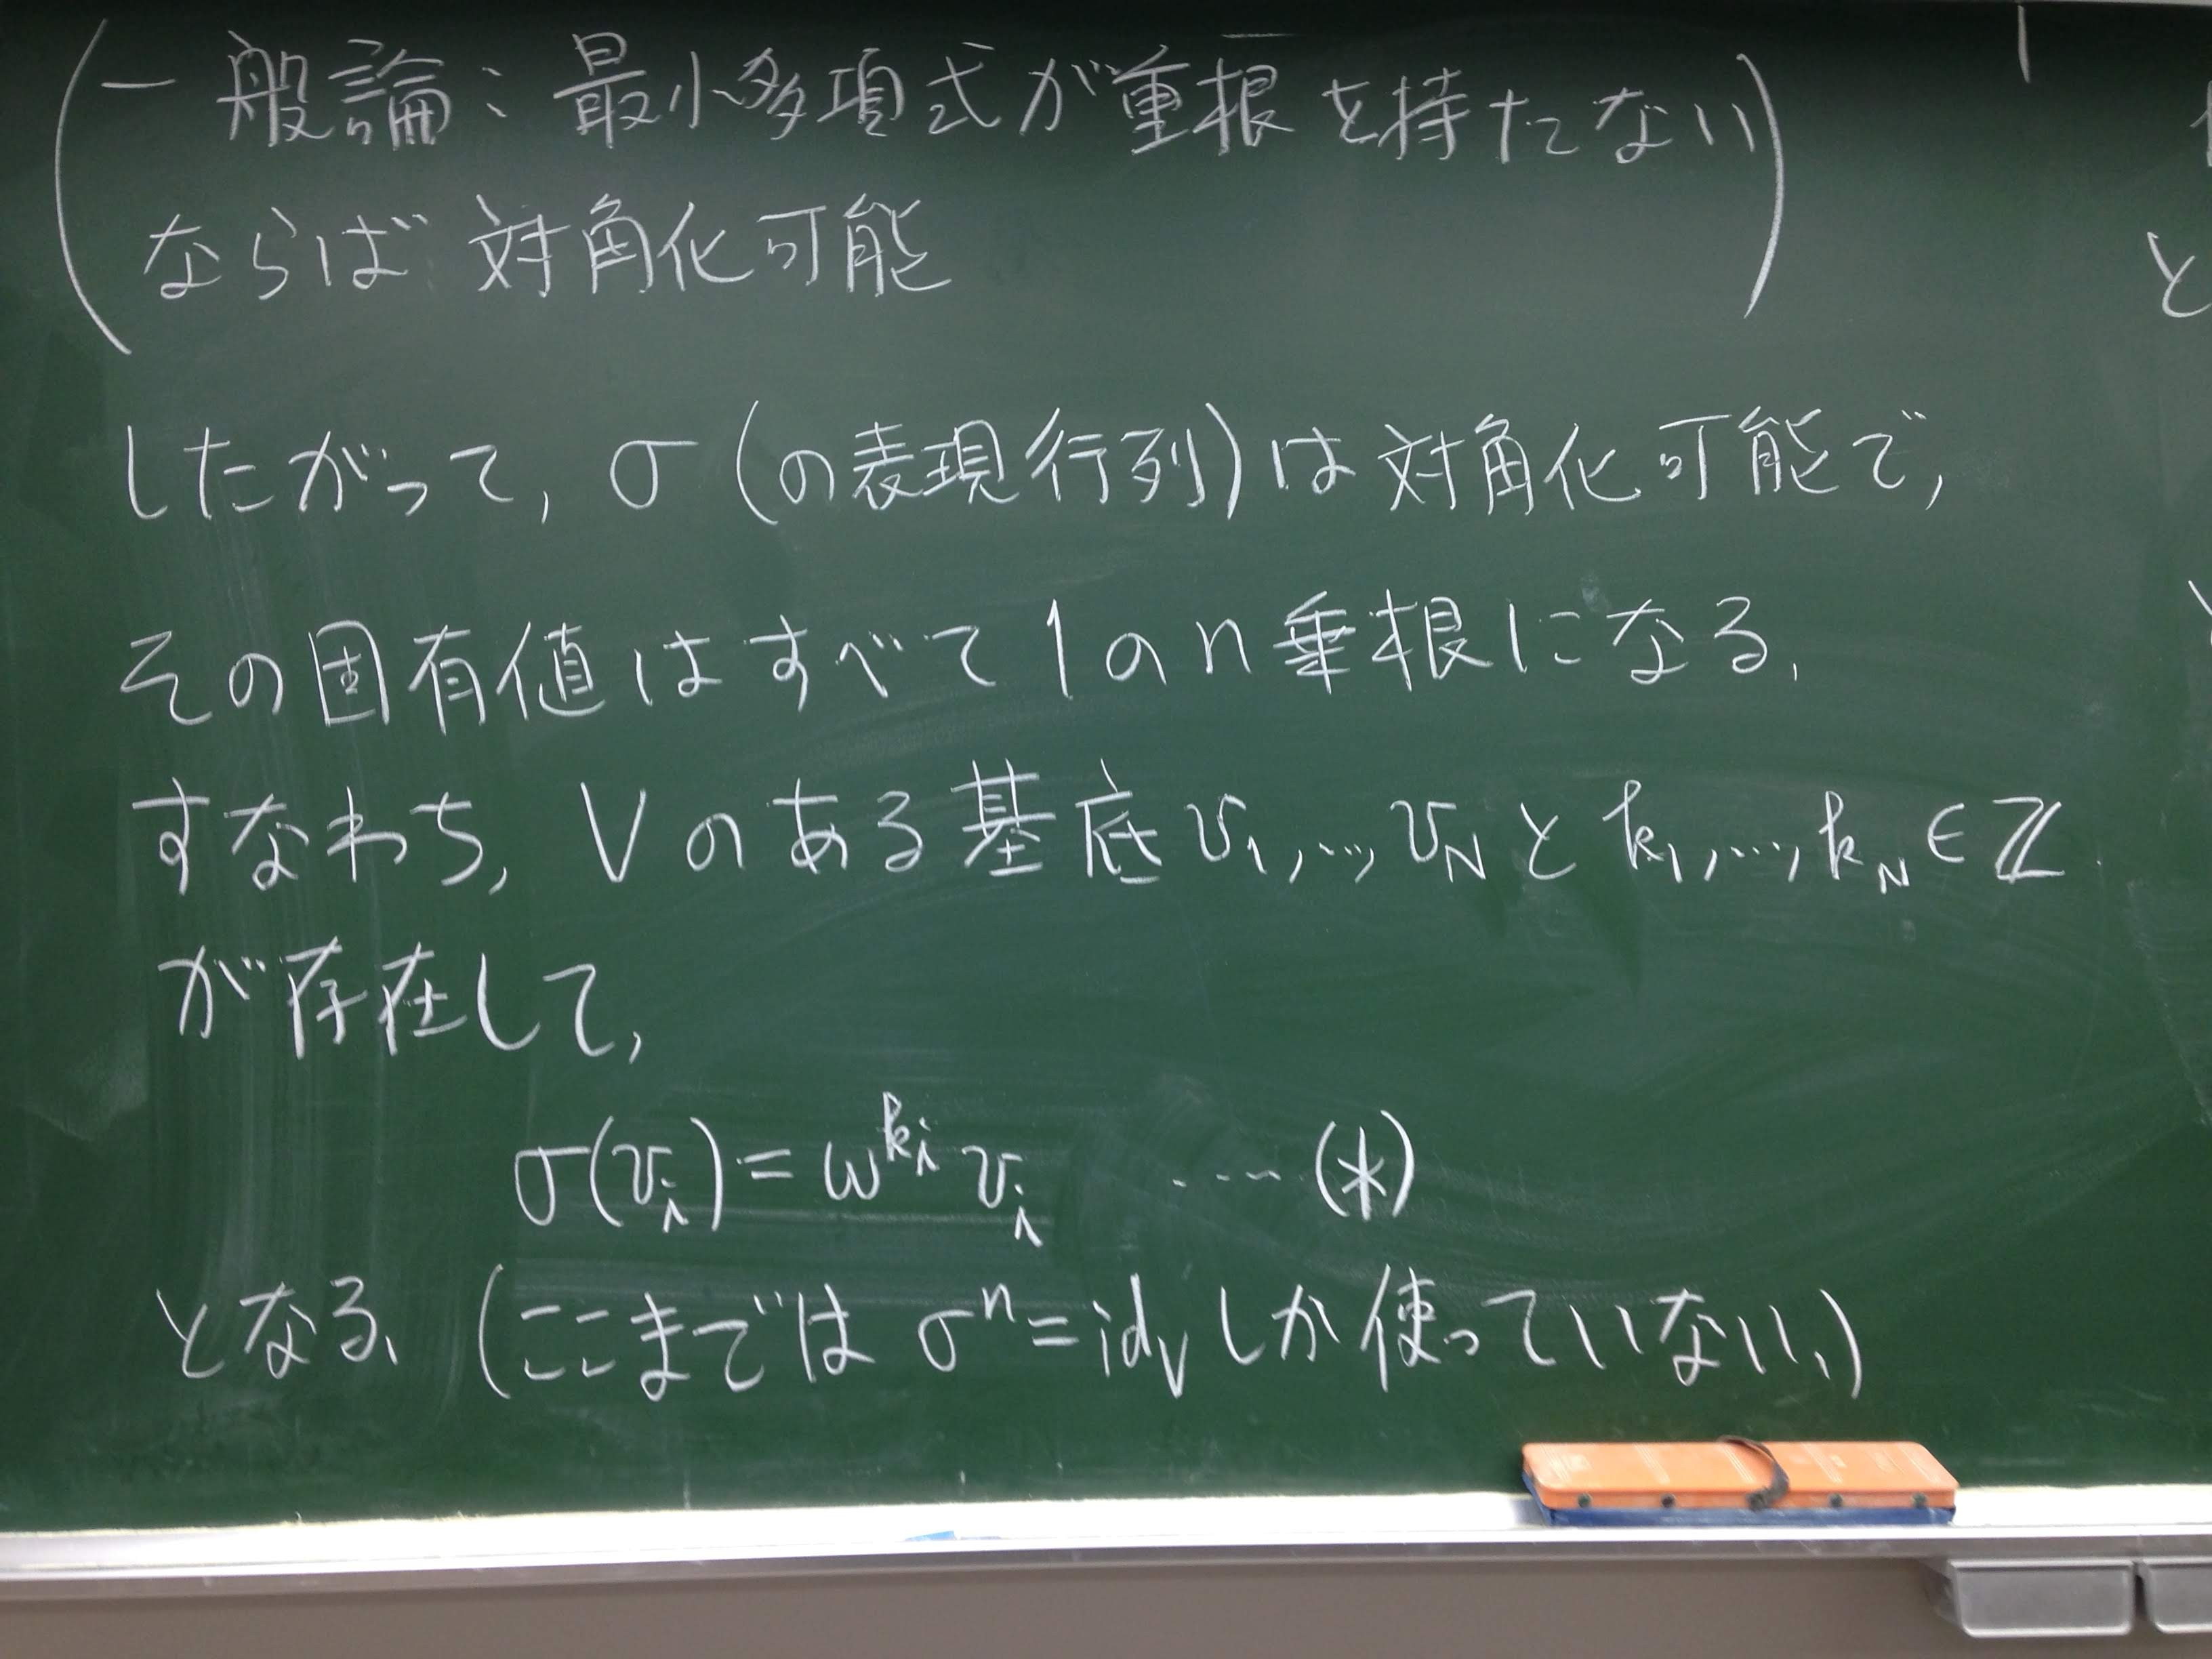 (一般論:最小多項式が重根を持たない
ならば対角化可能)
したがって, σ(の表現行列)は対角化可能で,
その固有値はすべて1のn乗根になる.
すなわち, Vのある基底 v₁,…,v_N と k₁,…,k_N ∈ ℤ
が存在して,
σ(v_i) = ω^{k_i} v_i ‥‥(*)
となる. (ここまでは σⁿ = id_V しか使っていない.)
と